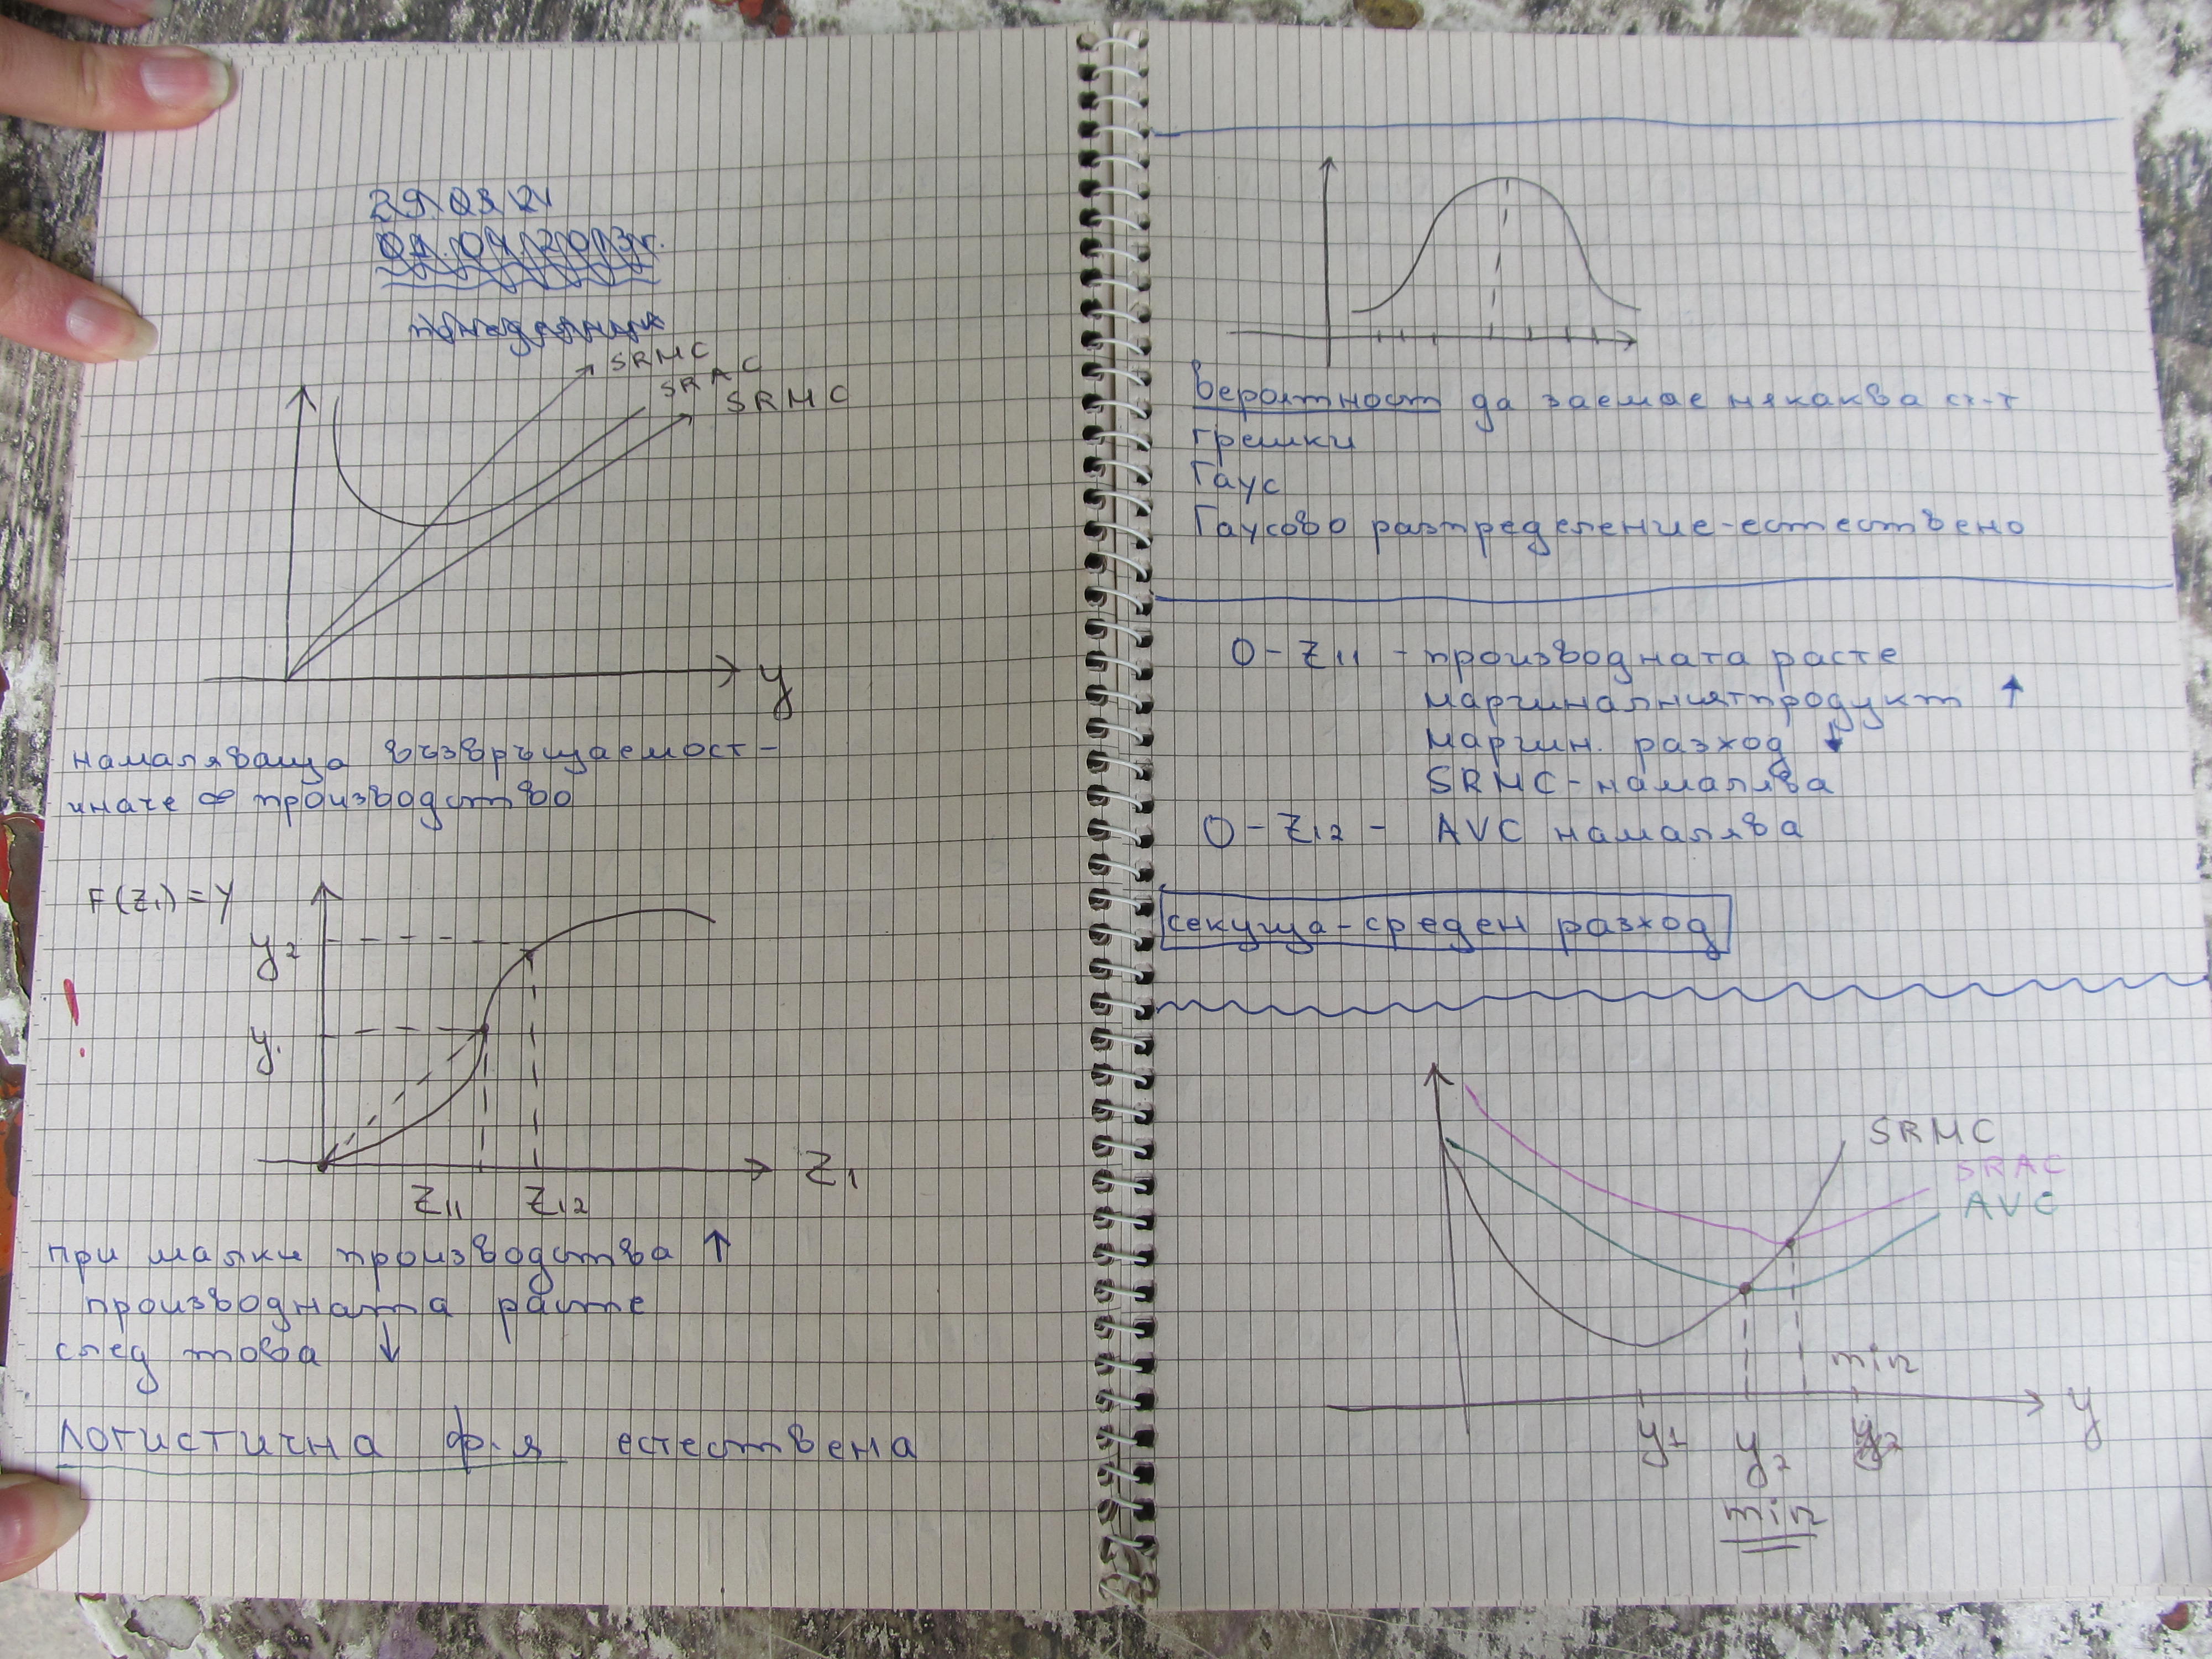 01.04.2013г.
понеделник
SRMC
SRAC
SRMC
y
намаляваща възвръщаемост -
иначе ∞ производство
F(z₁) = y
y₂
y₁
z₁
z₁₁ z₁₂
при малки производства ↑
производната расте
след това ↓
логистична ф-я естествена
вероятност да заемае някаква ст-т
грешки
Гаус
Гаусово разпределение - естествено
0 - z₁₁ - производната расте
маргиналният продукт ↑
маргин. разход ↓
SRMC - намалява
0 - z₁₂ - AVC намалява
секуща - среден разход
SRMC
SRAC
AVC
min
y
y₁ y₂
min